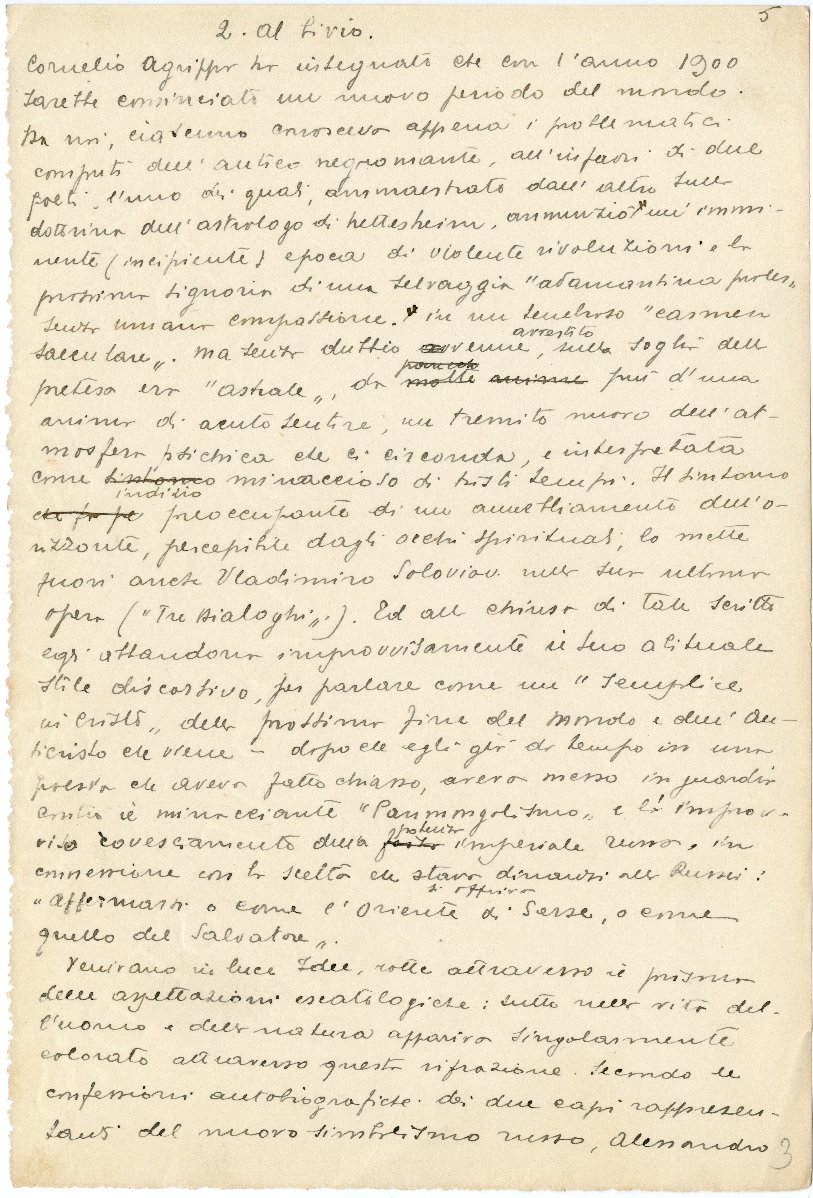 5
2. Al bivio.
Cornelio Agrippa ha insegnato che con l'anno 1900
sarebbe cominciato un nuovo periodo del mondo.
Da noi, ciascuno conosceva appena i problematici
computi dell'antico negromante, all'infuori di due
poeti, l'uno dei quali, ammaestrato dall'altro sulla
dottrina dell'astrologo di Nettesheim, annunziò un'immi-
nente (incipiente) epoca di violente rivoluzioni e la
prossima signoria di una selvaggia "adamantina proles„
senza umana compassione. in un tenebroso "carmen
saeculare„. Ma senza dubbio avvenne, sulla soglia della
arrestito
pretesa era "astrale„, da molte anime più d'una
parecch
anima di acuto sentire, un tremito nuovo dell'at-
mosfera psichica che ci circonda, e interpretata
come sintomo minaccioso di tristi tempi. Il sintomo
indizio
che fa pe preoccupante di un annebbiamento dell'o-
rizzonte, percepibile dagli occhi spirituali, lo mette
fuori anche Vladimiro Soloviov. nella sua ultima
opera ("Tre Dialoghi„.). Ed alla chiusa di tale scritto
egli abbandona improvvisamente il suo abituale
stile discorsivo, per parlare come un "semplice
in Cristo„ della prossima fine del mondo e dell'An-
ticristo che viene – dopo che egli già da tempo in una
poesia che aveva fatto chiasso, aveva messo in guardia
contro il minacciante "Panmongolismo„ e l'improv-
viso rovesciamento della forza imperiale russa, in
potenza
connessione con la scelta che stava dinanzi alla Russia:
si offriva
"Affermarsi o come l'Oriente di Serse, o come
quello del Salvatore„.
Venivano in luce Idee, rotte attraverso il prisma
delle aspettazioni escatologiche: tutto nella vita del-
l'uomo e della natura appariva singolarmente
colorato attraverso questa rifrazione. Secondo le
confessioni autobiografiche. dei due capi rappresen-
tanti del nuovo simbolismo russo, Alessandro
3